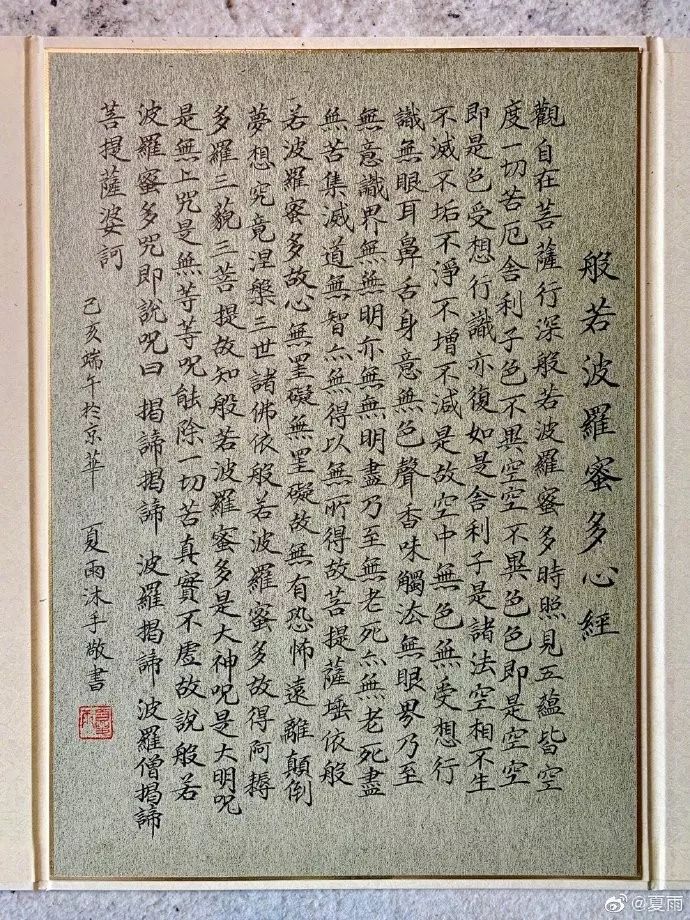 般若波羅蜜多心經
觀自在菩薩行深般若波羅蜜多時照見五蘊皆空
度一切苦厄舍利子色不異空空不異色色即是空空
即是色受想行識亦復如是舍利子是諸法空相不生
不滅不垢不淨不增不減是故空中無色無受想行
識無眼耳鼻舌身意無色聲香味觸法無眼界乃至
無意識界無無明亦無無明盡乃至無老死亦無老死盡
無苦集滅道無智亦無得以無所得故菩提薩埵依般
若波羅蜜多故心無罣礙無罣礙故無有恐怖遠離顛倒
夢想究竟涅槃三世諸佛依般若波羅蜜多故得阿耨
多羅三藐三菩提故知般若波羅蜜多是大神呪是大明呪
是無上呪是無等等呪能除一切苦真實不虛故說般若
波羅蜜多呪即說呪曰 揭諦揭諦 波羅揭諦 波羅僧揭諦
菩提薩婆訶
己亥端午於京華 夏雨沐手敬書
@夏雨